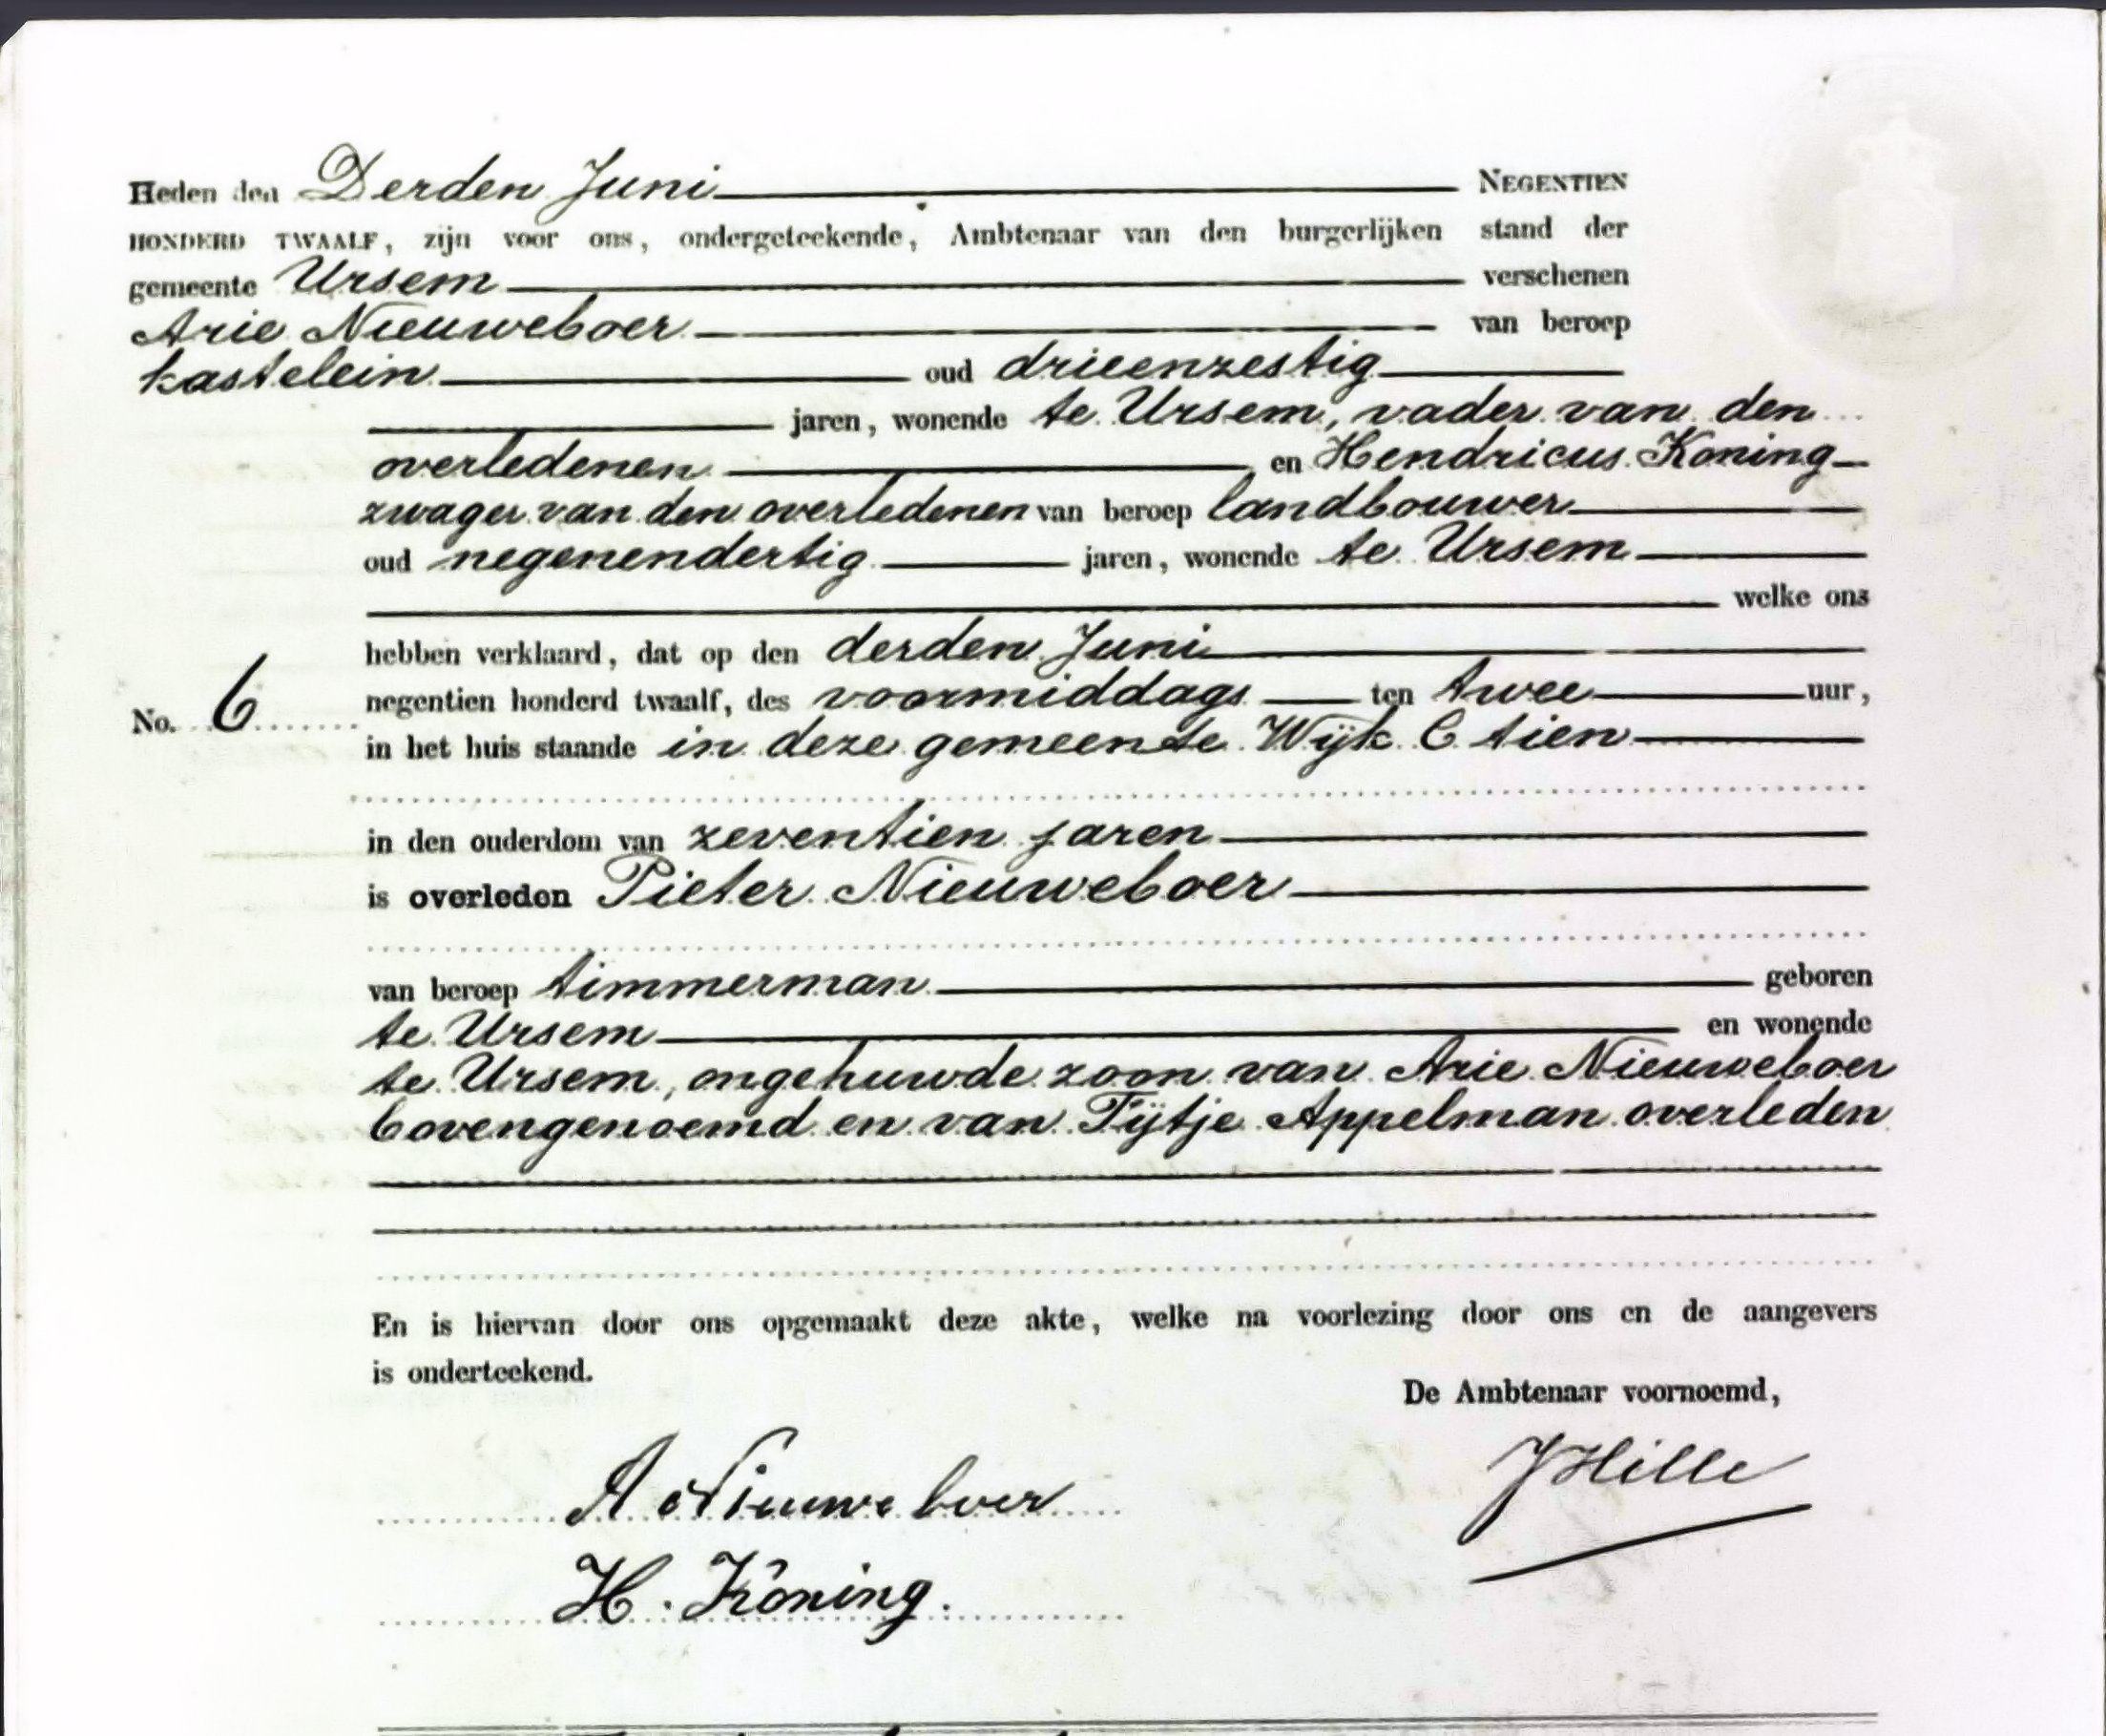 Heden den Derden Juni NEGENTIEN
HONDERD TWAALF, zijn voor ons, ondergeteekende, Ambtenaar van den burgerlijken stand der
gemeente Ursem verschenen
Arie Nieuweboer van beroep
kastelein oud drieenzestig
jaren, wonende te Ursem, vader van den
overledenen en Hendricus Koning
zwager van den overledenen van beroep landbouwer
oud negenendertig jaren, wonende te Ursem
welke ons
hebben verklaard, dat op den derden Juni
negentien honderd twaalf, des voormiddags ten twee uur,
No. 6
in het huis staande in deze gemeente Wijk C tien
in den ouderdom van zeventien jaren
is overleden Pieter Nieuweboer
van beroep timmerman geboren
te Ursem en wonende
te Ursem, ongehuwde zoon van Arie Nieuweboer
bovengenoemd en van Tijtje Appelman overleden
En is hiervan door ons opgemaakt deze akte, welke na voorlezing door ons en de aangevers
is onderteekend.
De Ambtenaar voornoemd,
A Nieuweboer
JHille
H. Koning.